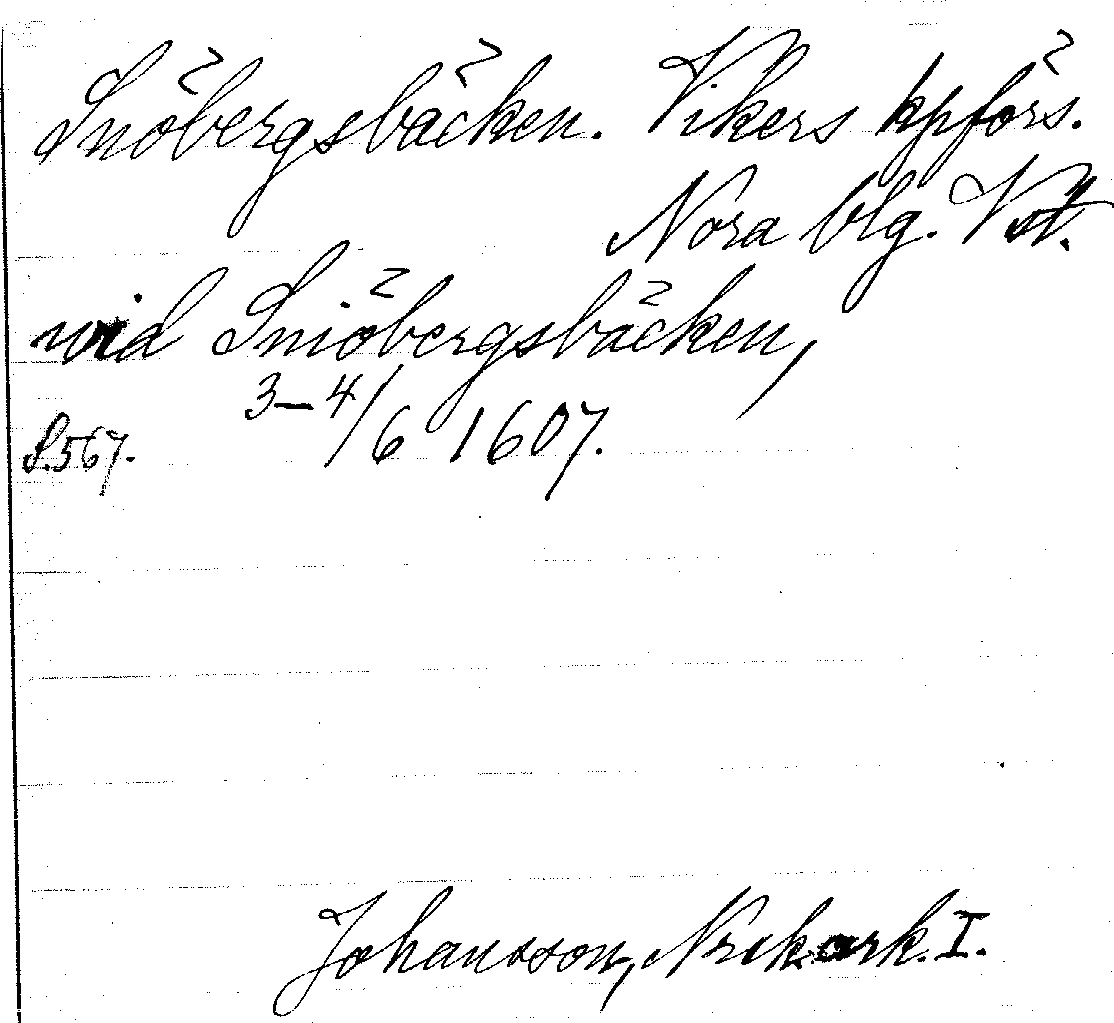 Snöbergsbäcken. Vikers kpförs.
Nora blg. Vstl.
wid Sniöbergsbäcken,
3–4/6 1607.
S.567.
Johansson, Norikark. I.